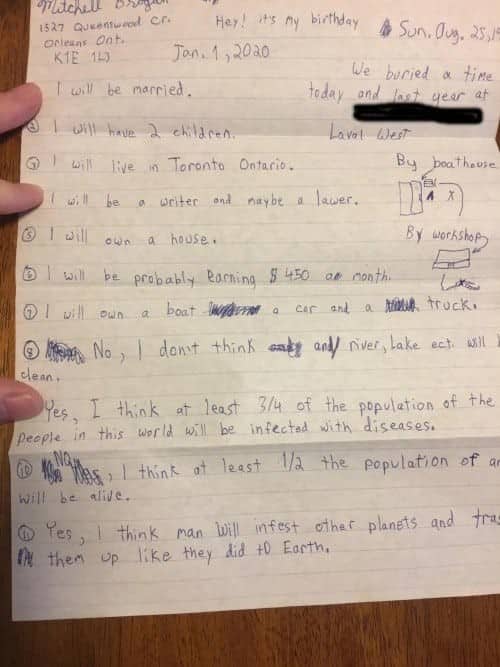 Mitchell
1527 Queenswood Cr.
Orleans Ont.
K1E
Hey! it's my birthday
Jan. 1, 2020
Sun. Aug. 25,
We buried a time
today and last year at
Laval West
By boathouse
X
By workshop
I will be married.
② I will have 2 children.
③ I will live in Toronto Ontario.
I will be a writer and maybe a lawer.
⑤ I will own a house.
⑥ I will be probably earning $ 450 a month.
⑦ I will own a boat a car and a truck.
⑧ No, I don't think any river, Lake ect. will
clean.
Yes, I think at least 3/4 of the population of the
people in this world will be infected with diseases.
⑩ No, I think at least 1/2 the population of
will be alive.
⑪ Yes, I think man will infest other planets and
them up like they did to Earth.